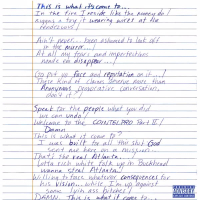 This is what it's come to..
In the fire I reside like the
at the
rendezvous!
Ain't never... been ashamed to look off
in the mirror...!
At all my flaws and imperfections
needs to disappear...!
Go put up face and reputation on it...!
These kind of claims deserve more than
Anonymous provocative conversation,
don't it?
Speak for the people what you did
we can undo!
Welcome to the COINTELPRO Part II!
Damn
This is what it come to?
I was built to all this shit God
sent me here on a mission...
That's the real Atlanta.
Lotta rich white folk up in Buckhead
wanna steal Atlanta!
Willing to face whatever consequences for
his vision... while I'm up against
some lyin ass bitches!
DAMN.. This is what it come to...
PARENTAL
ADVISORY
EXPLICIT CONTENT